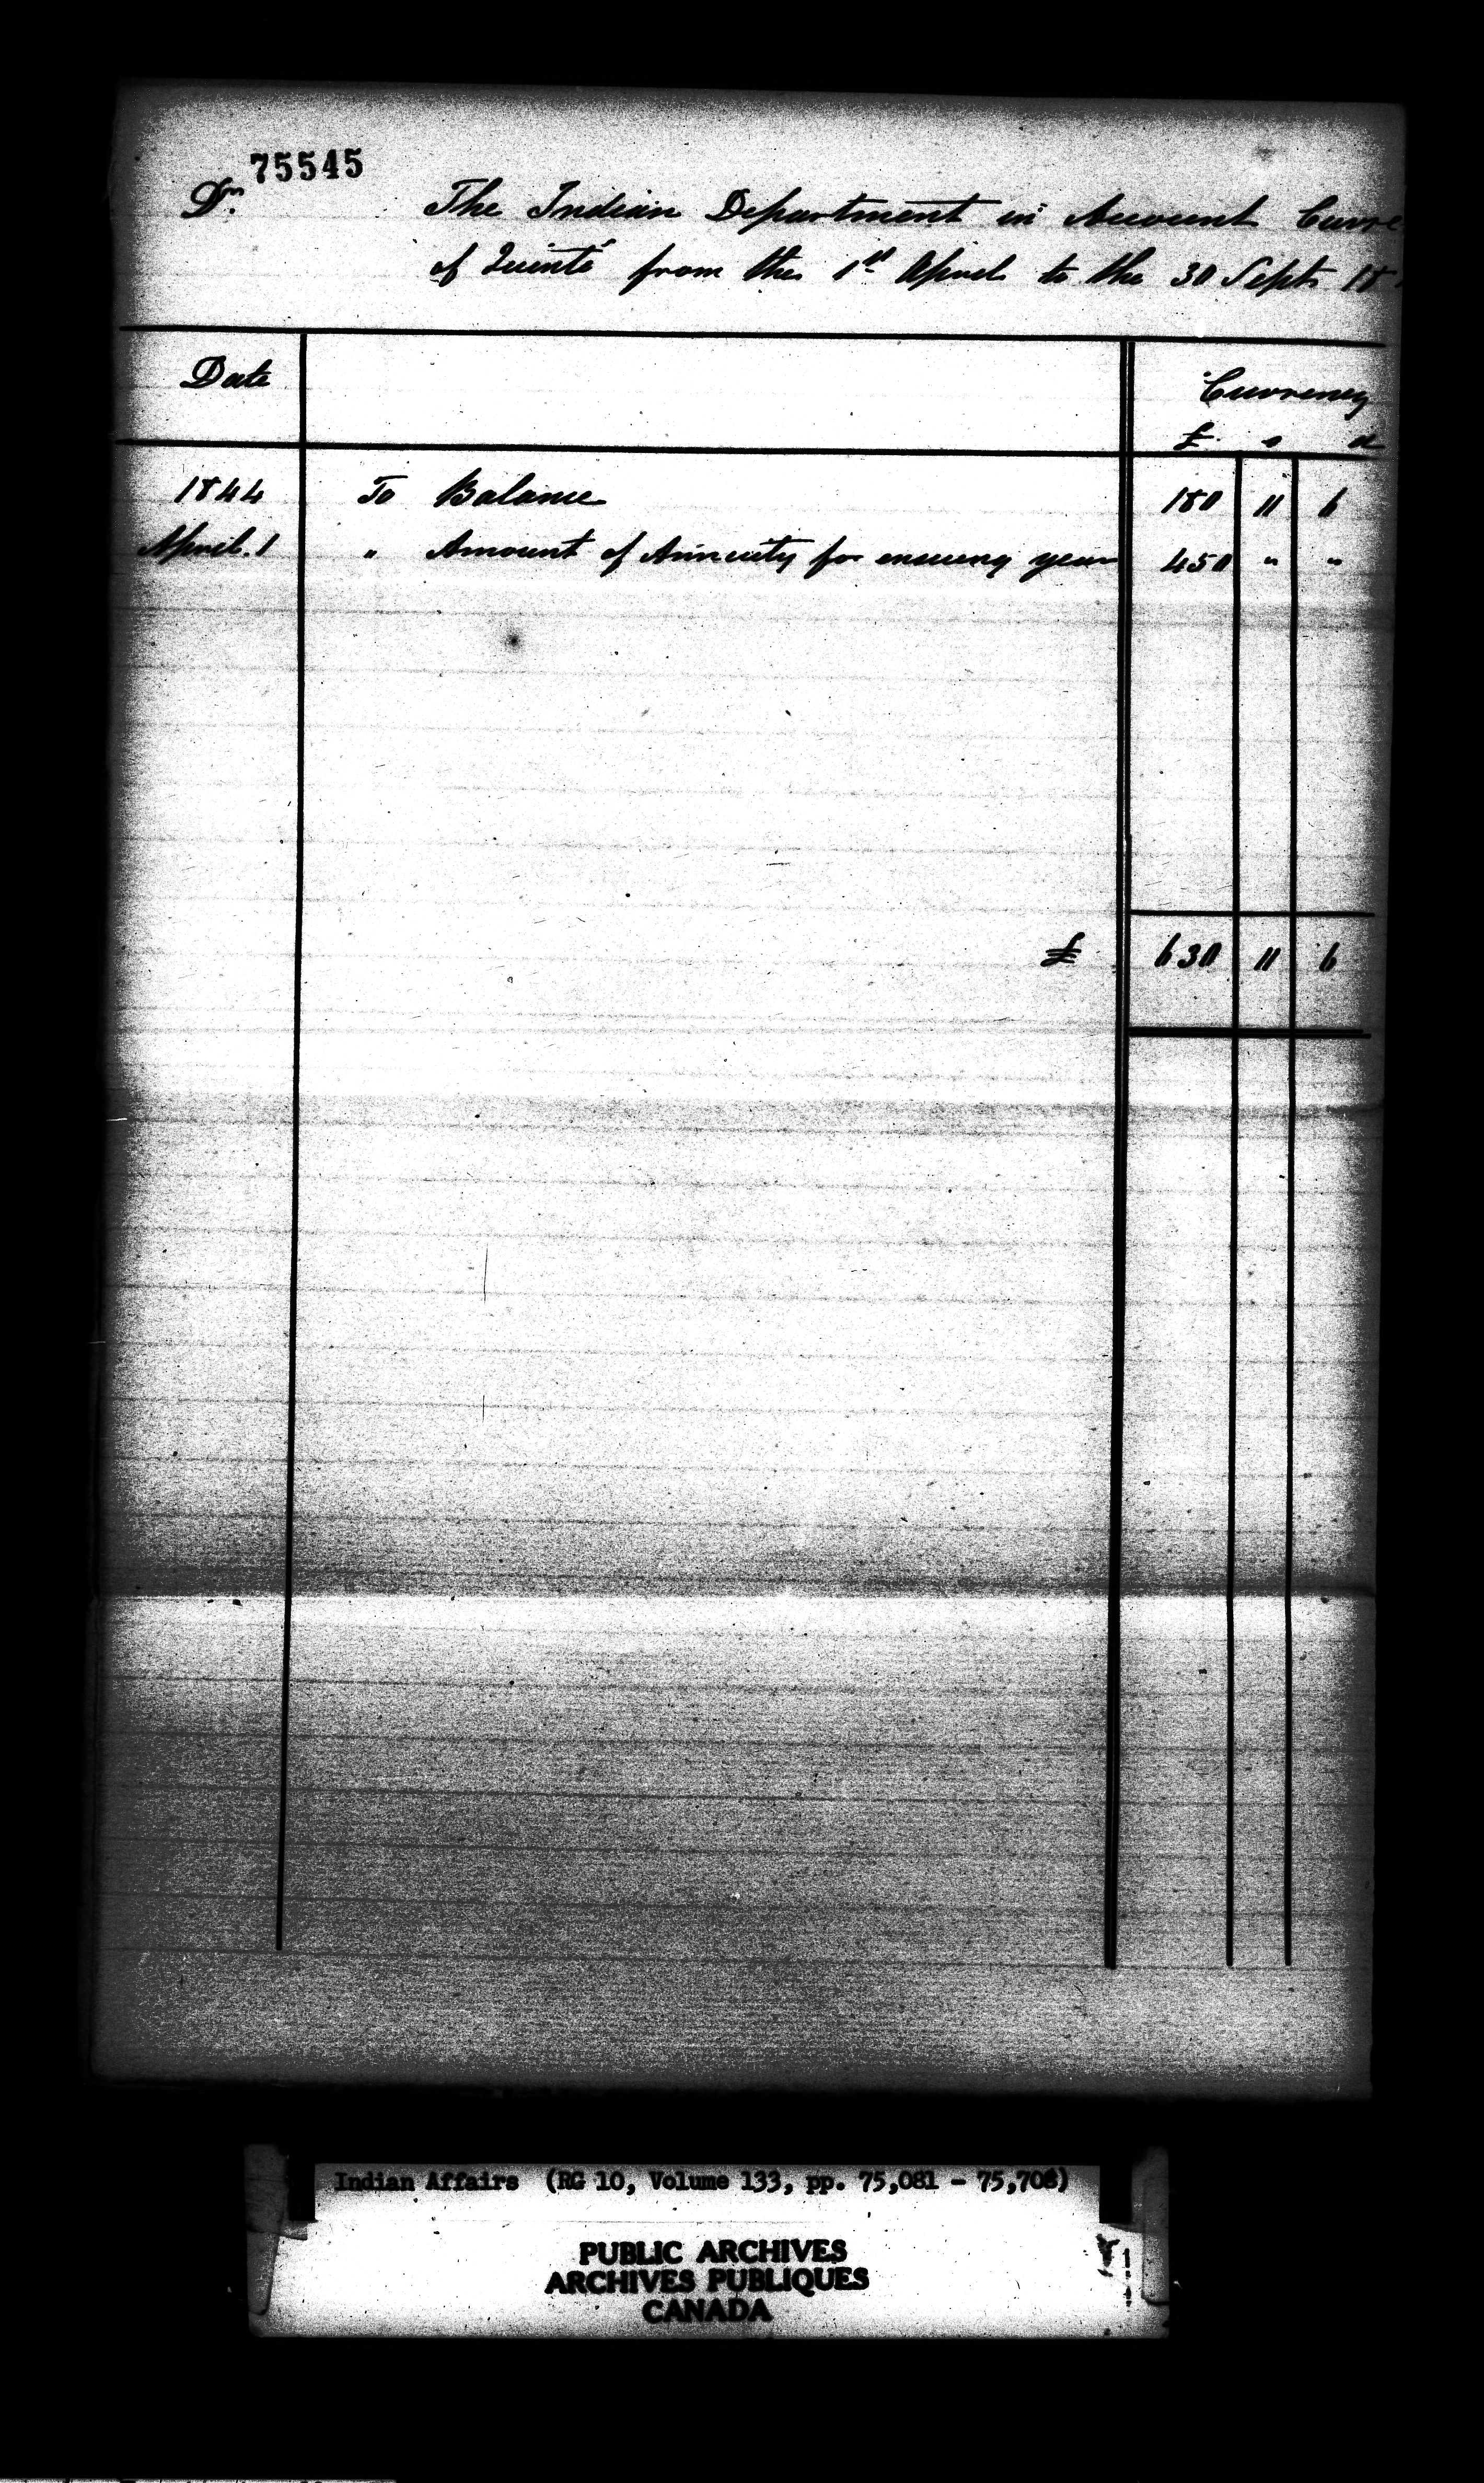 75545
Dr. The Indian Department in Account Curre
of Quinté from the 1st April to the 30 Sept. 18
Date Currency
£ s d
1844 To Balance 180 11 6
April. 1 " Amount of Annuity for ensuing year 450 " "
£ 630 11 6
Indian Affairs (RG 10, Volume 133, pp. 75,081 - 75,708)
PUBLIC ARCHIVES
ARCHIVES PUBLIQUES
CANADA